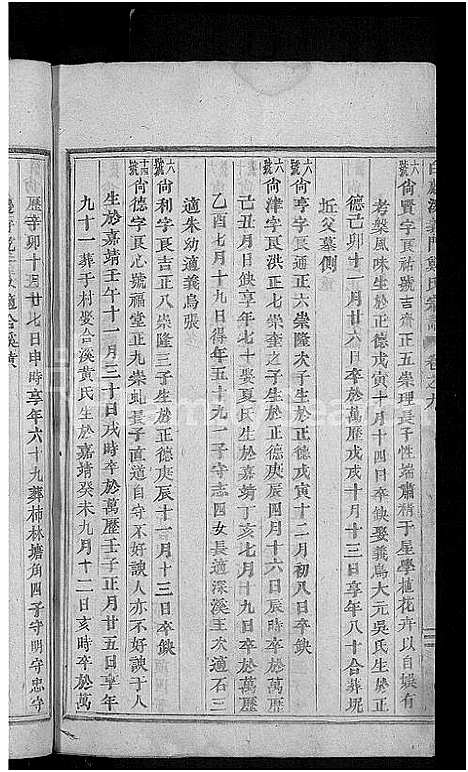 白麟溪義門鄭氏宗譜 卷之九
六號尙賢字良祐號吉齋正五崇理長子性端肅稍于星學植花卉以自娛有
考槃風味生於正德戊寅十月十四日卒缺娶義烏大元吳氏生於正
德己卯十二月廿六日卒於萬歷戊戌十月十三日享年八十合葬坭
坵父墓側
六號尙亨字良誼正六崇隆次子生於正德戊寅十二月初八日卒缺
六號尙津字良洪正七崇奎之子生於正德庚辰四月十六日辰時卒於萬歷
己丑月日缺享年七十娶夏氏生於嘉靖丁亥七月十九日卒於萬歷
乙酉七月十九日得年五十九一子守志四女長適深溪王次適石三
適朱幼適義烏張
六號尙利字良吉正八崇隆三子生於正德庚辰十一月十三日卒缺
十四號尙德字良心號福堂正九崇虬長子直道自守不好諛人亦不好諛于人
生於嘉靖壬午十一月三十日戌時卒於萬歷壬子正月廿五日享年
九十一葬于村娶合溪黃氏生於嘉靖癸未九月十二日亥時卒於萬
歷辛卯十月廿七日申時享年六十九葬柿林塘角四子守明守忠守